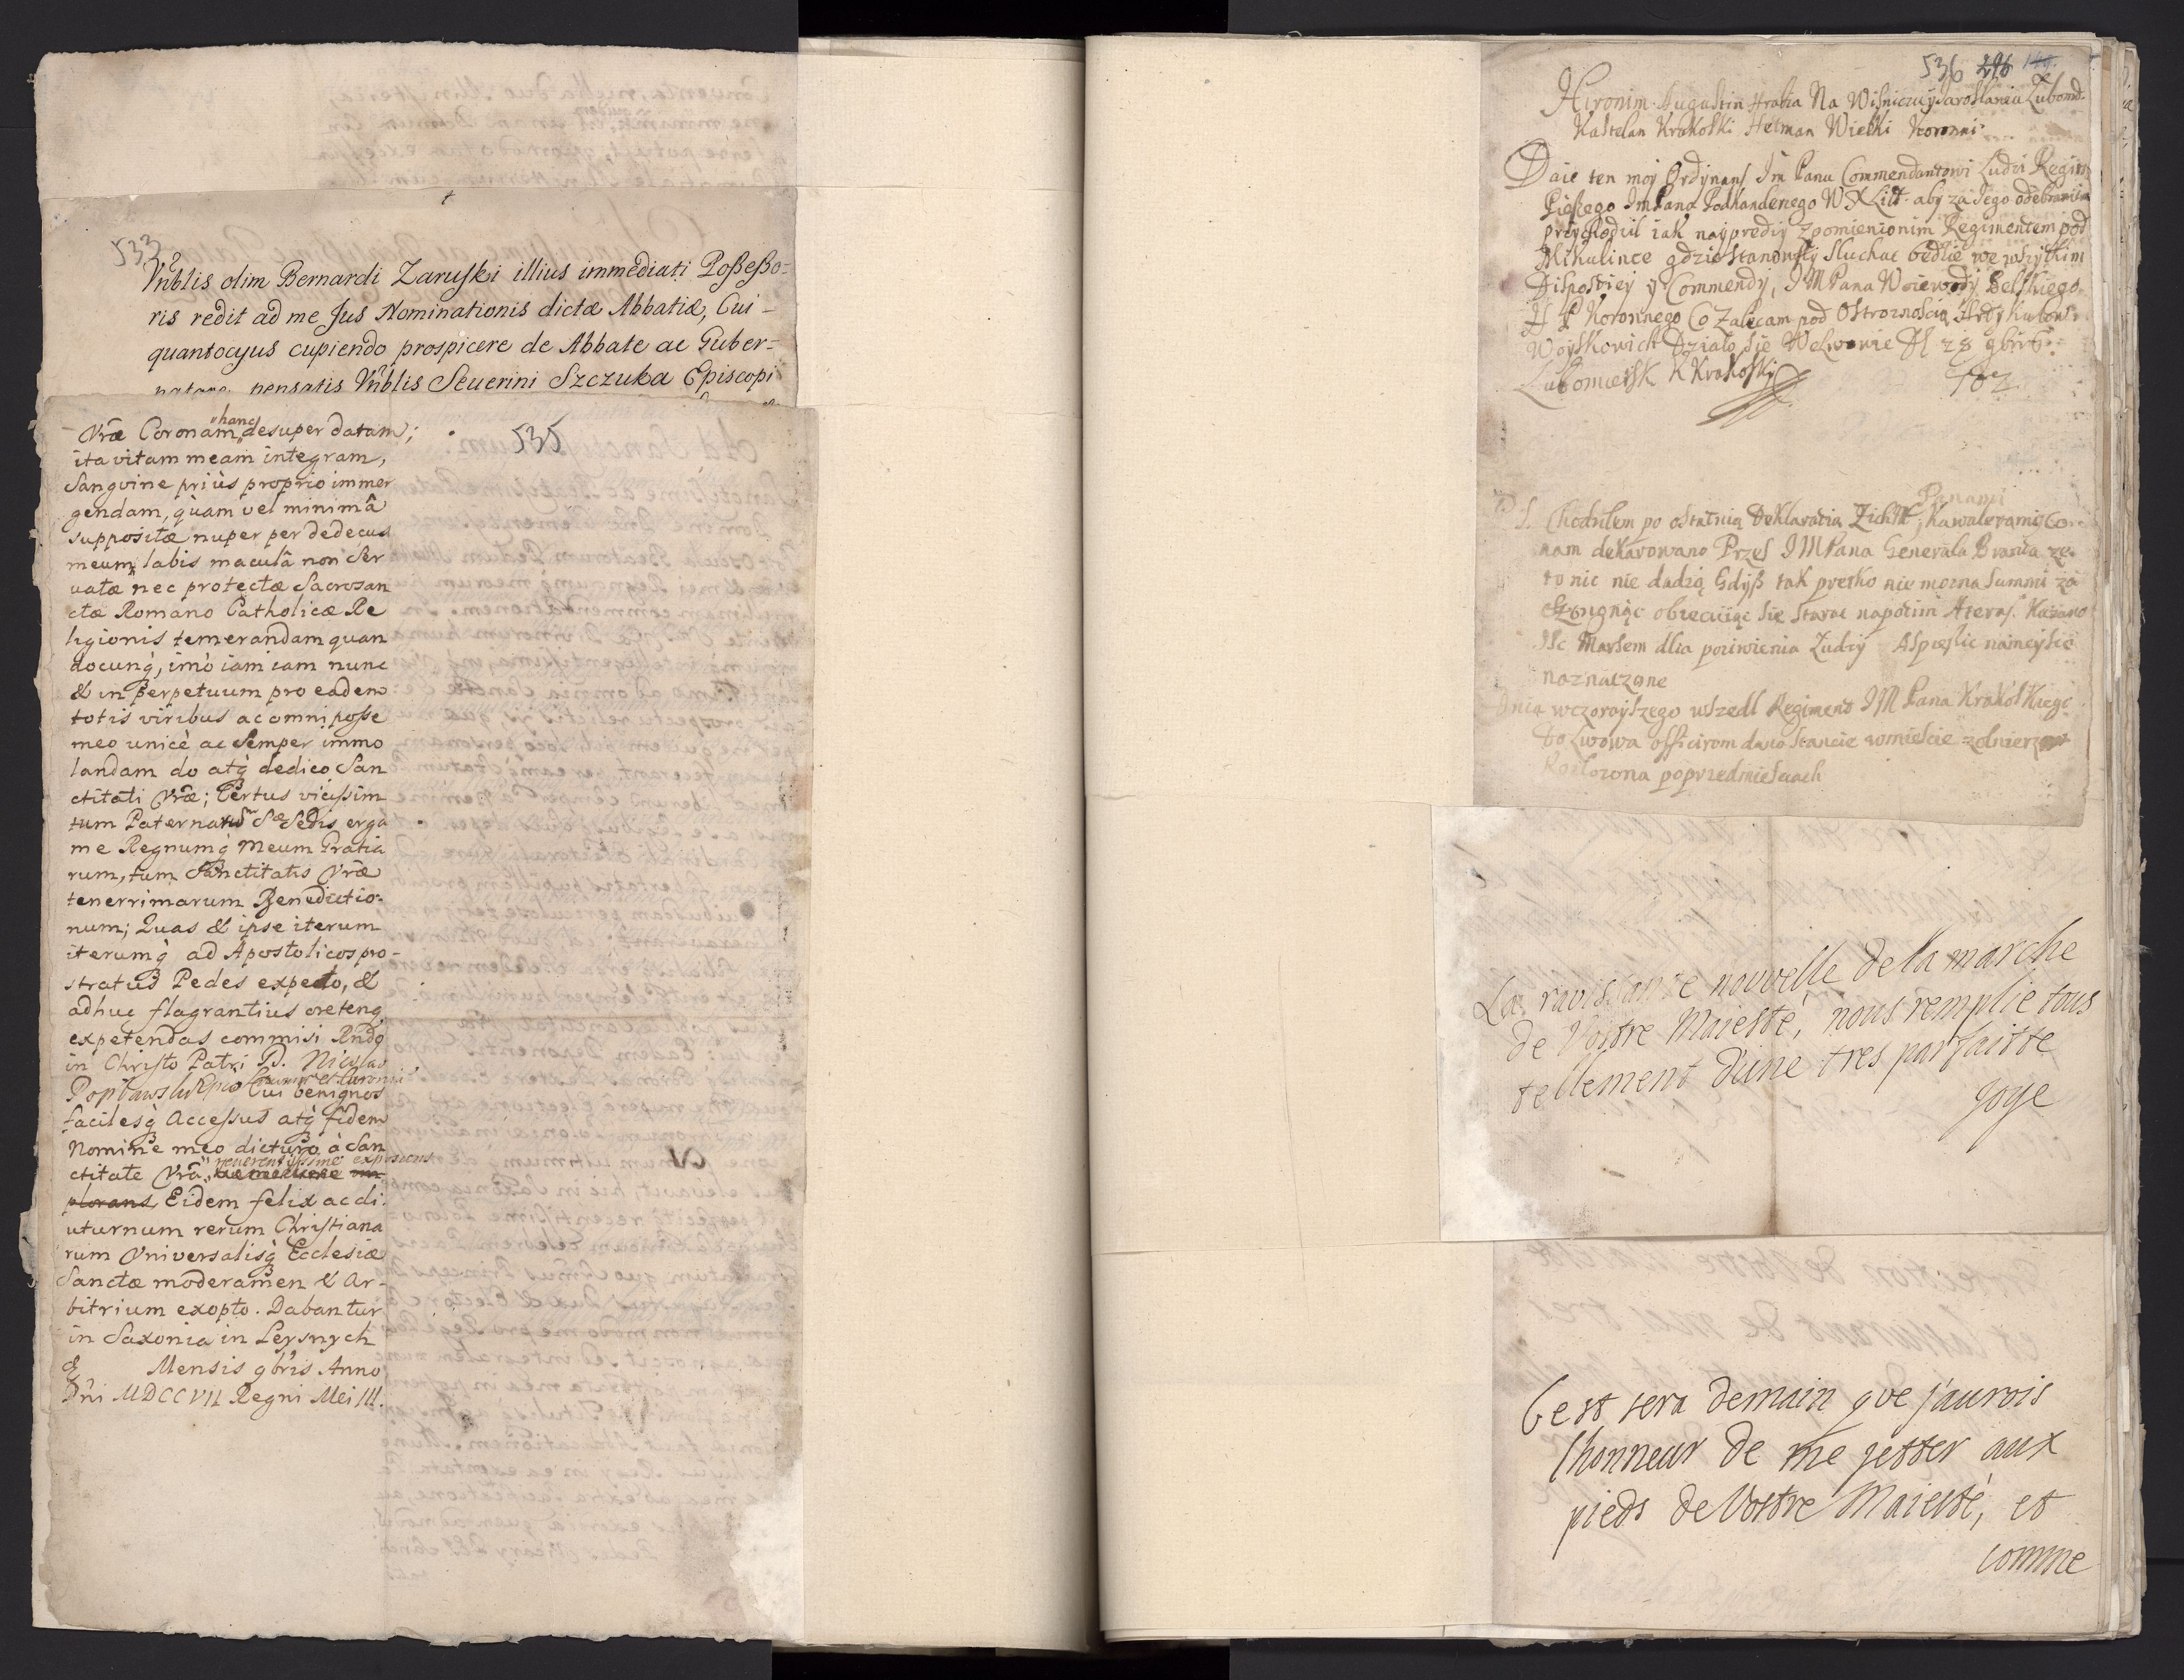 533
Vnblis olim Bernardi Zaruski illius immediati Poßeßo=
ris redit ad me Jus Nominationis dictæ Abbatiæ, Cui -
quantocyus cupiendo prospicere de Abbate ac Guber=
natore pensatis Vnblis Seuerini Szczuka Episcopi
535
Vræ Coronam hanc desuper datam;
ita vitam meam integram,
Sangvine priùs proprio immer
gendam, quàm vel minimâ
suppositæ nuper per dedecus
meum labis maculâ non Ser
uatæ nec protectæ Sacrosan
ctæ Romano Catholicæ Re
ligionis temerandam quan
docunq́, imò iam iam nunc
& in perpetuum pro eadem
totis viribus ac omni posse
meo unicè ac semper immo
landam do atq́ dedico San
ctitati Vræ; Certus vicissim
tum Paternarũ Sæ Sedis erga
me Regnumq́ Meum Gratia
rum, tum Sanctitatis Vræ
tenerrimarum Benedictio-
num; Quas & ipse iterum
iterumq́ ad Apostolicos pro-
stratus Pedes expecto, &
adhuc flagrantius oretenq́
expetendas commisi Rndo
in Christo Patri D. Nicolao
Popławski Cui benignos
facilesq́ Accessus atq́ fidem
Nomine meo dicturo à San
ctitate Vrâ reuerentissime exposcens
plorans Eidem felix ac di
uturnum rerum Christiana
rum Vniversalisq́ Ecclesiæ
Sanctæ moderamen & Ar-
bitrium exopto. Dabantur
in Saxonia in Leysnych
Mensis 9bris Anno
Dni MDCCVII Regni Mei III.
536 296
Hironim Augustin Hrabia Na Wisniczuiy Jaroslaniu Lubomi
Kastelan Krakoski Hetman Wielki Koronni
Daie ten moy Ordynans Im Panu Commendantowi Ludzi Regim
Pieszego Im Pana Podkanderzego W X Litt. aby za Iego odebraniem
przychodzil iak naypredzy zpomienionim Regimentem pod
Mikulince gdzie stanowszy Sluchac bedzie we wszytkim
Dispositiey y Commendy, IM Pana Woiewody Belskiego
H P Koronnego Co Zalecam pod Ostroznoscią
Woyskowich Działo sie We Lwowie D 28 9bris
Lubomirsk K Krakoski 702
Chodzilem po ostatnią Deklaratią Panami Kawalerami Co
nam deklarowano Przes IM Pana Generala Branta ze
to nic nie dadzą Gdyß tak pretko nie mozna Summi za
obiecuiąc sie starac napotim Ateras Kazano
Isc Marsem dlia poziwienia Ludzy
naznaczone
Dnia wczorayszego wszedl Regiment IM Pana Krakoskiego
Do Lwowa officirom dano stancie womiescie zolnierzow
Rozlozona poprzedmiesciach
La ravissante nouvelle de la marche
de Vostre Maiesté, nous remplie tous
tellement d'une tres parfaitte
joye
C'est sera demain que j'aurois
l'honneur de me jetter aux
pieds de Vostre Maiesté, et
comme